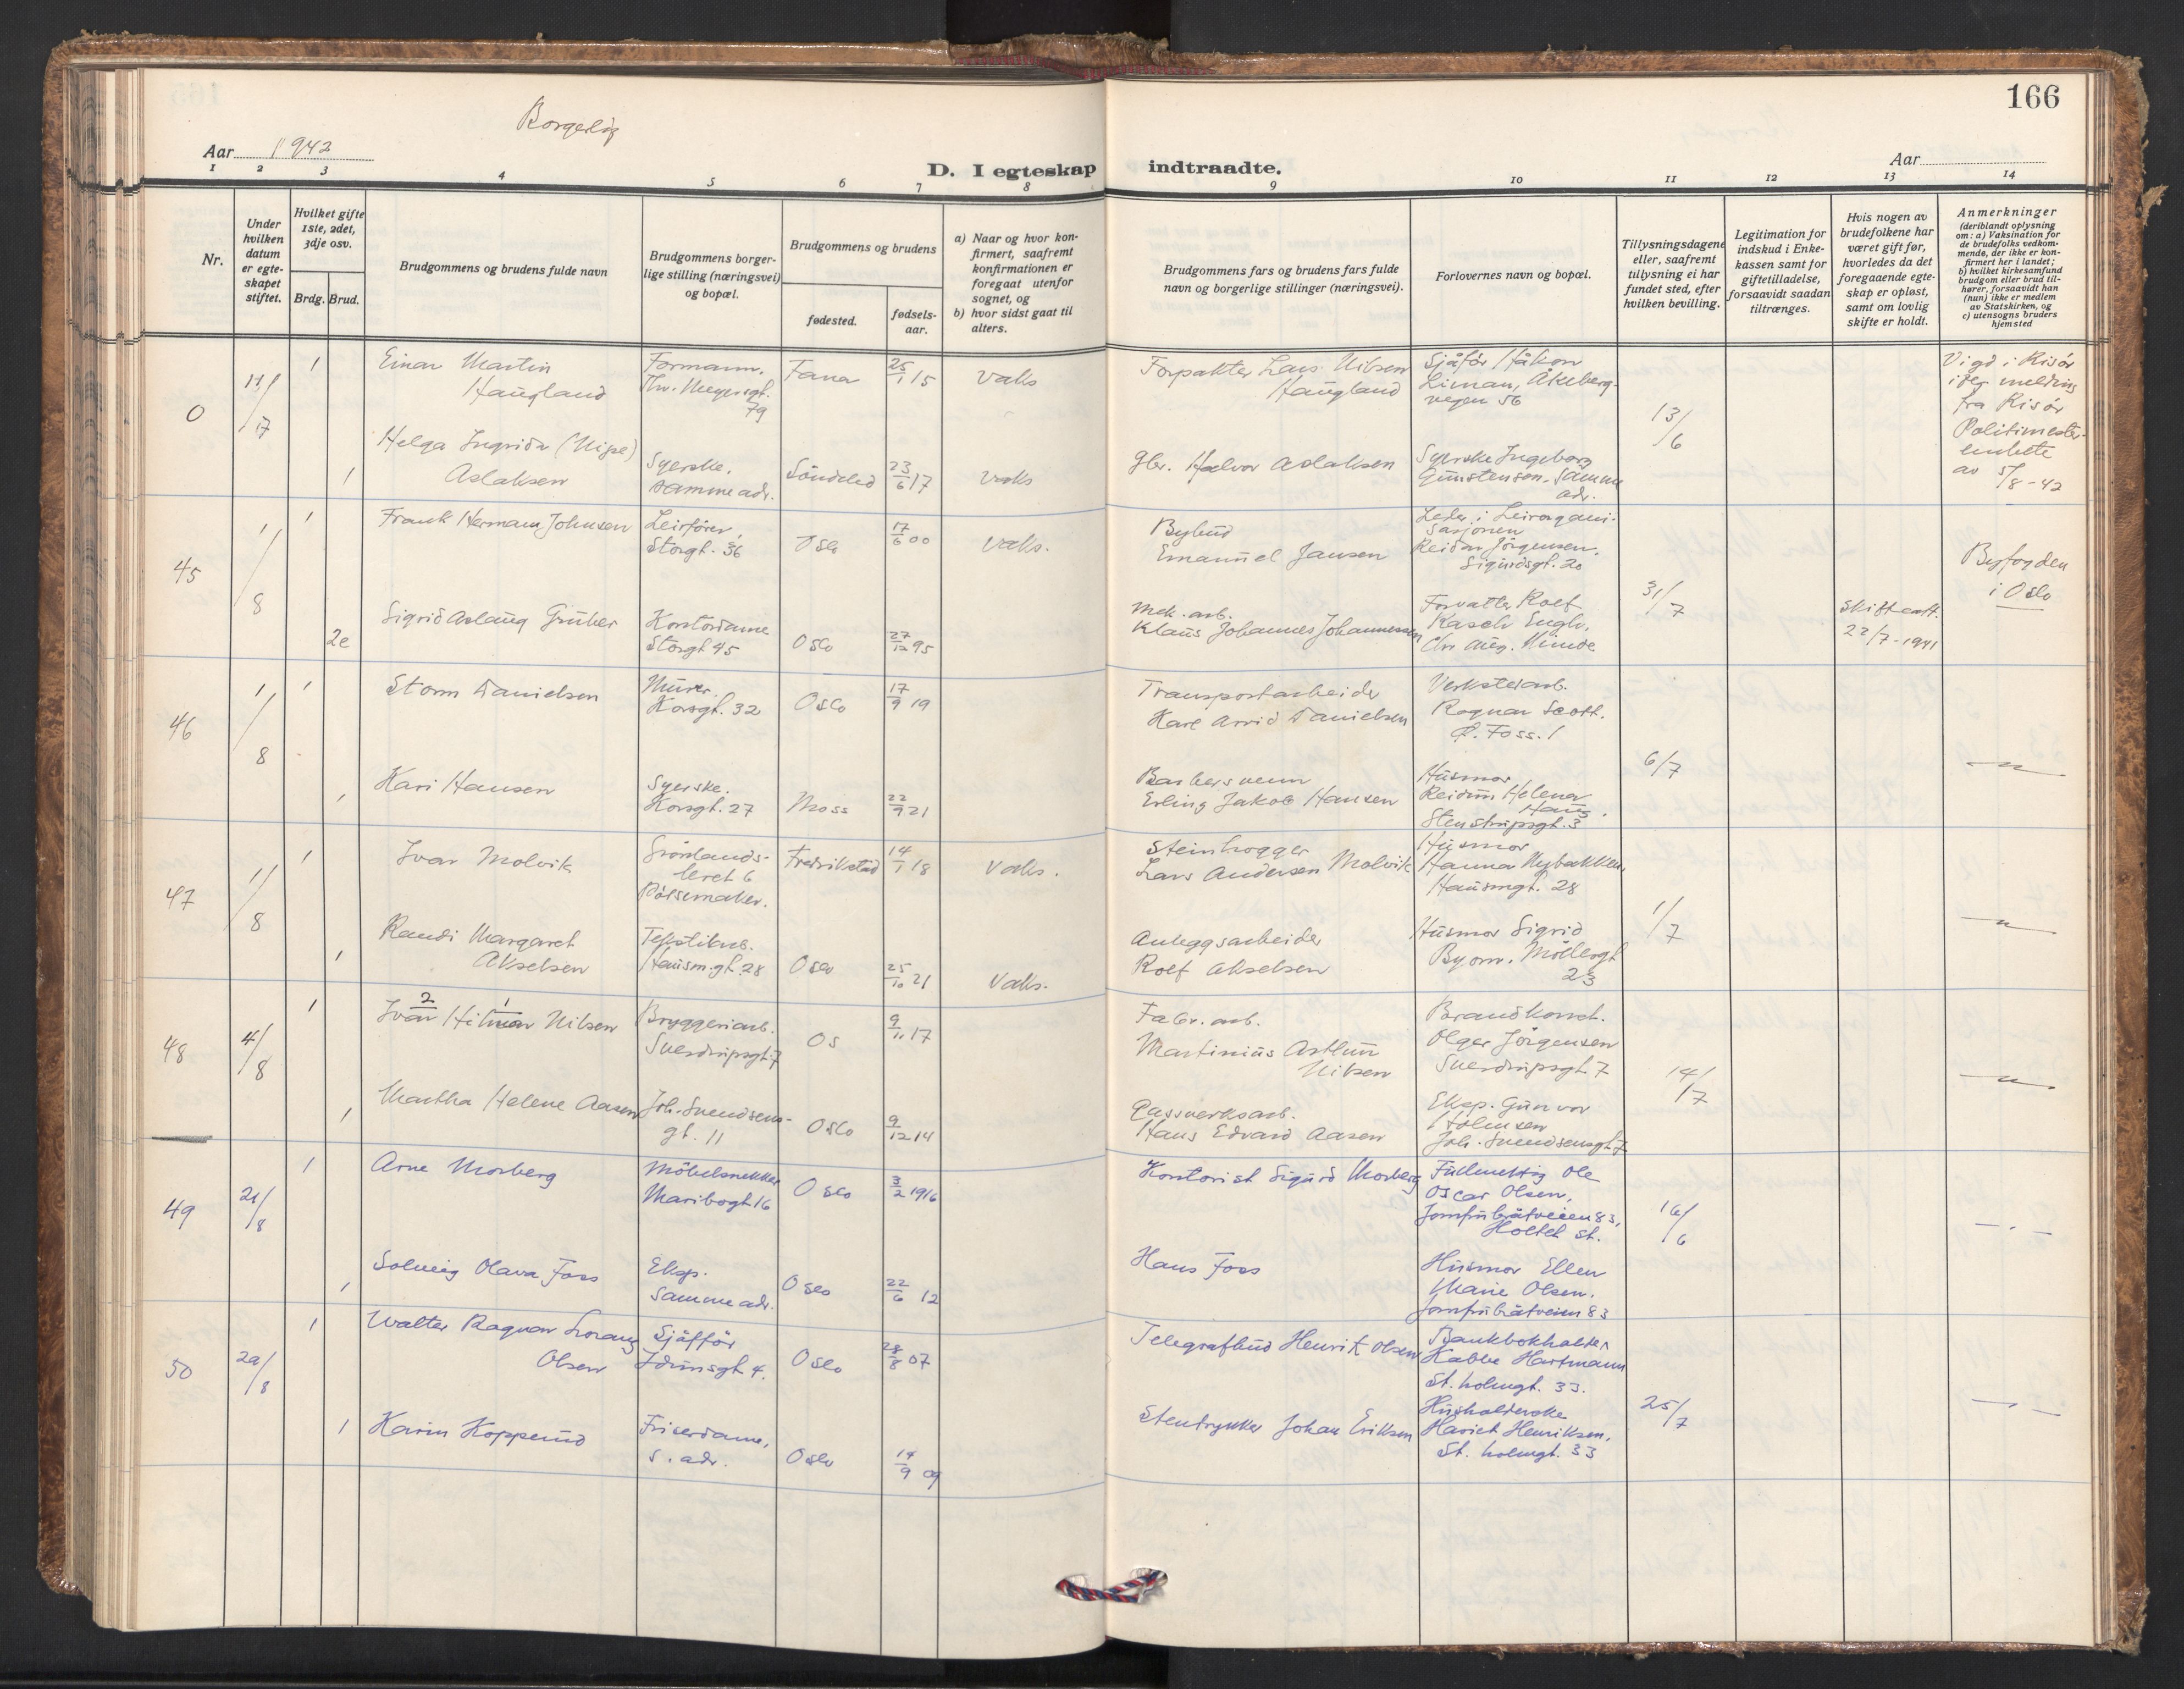 166
Borgerlig
Aar 1942
Aar
D. I egteskap indtraadte.
1 2 3 4 5 6 7 8 9 10 11 12 13 14
Nr.
Under hvilken datum er egteskapet stiftet.
Hvilket gifte 1ste, 2det, 3dje osv.
Brdg. Brud.
Brudgommens og brudens fulde navn
Brudgommens borgerlige stilling (næringsvei) og bopæl.
Brudgommens og brudens
fødested.
fødselsaar.
a) Naar og hvor konfirmert, saafremt konfirmationen er foregaat utenfor sognet, og
b) hvor sidst gaat til alters.
Brudgommens fars og brudens fars fulde navn og borgerlige stillinger (næringsvei).
Forlovernes navn og bopæl.
Tillysningsdagene eller, saafremt tillysning ei har fundet sted, efter hvilken bevilling.
Legitimation for indskud i Enkekassen samt for giftetilladelse, forsaavidt saadan tiltrænges.
Hvis nogen av brudefolkene har været gift før, hvorledes da det foregaaende egteskap er opløst, samt om lovlig skifte er holdt.
Anmerkninger (deriblandt oplysning om: a) Vaksination for de brudefolks vedkommende, der ikke er konfirmert her i landet; b) hvilket kirkesamfund brudgom eller brud tilhører, forsaavidt han (hun) ikke er medlem av Statskirken, og c) utensogns bruders hjemsted
0
1
Einar Martin
Haugland
Formann.
Thv. Meyersgt.
79
Fana
25/1 15
Vaks
Forpakter Lars Nilsen
Haugland
Sjåfør Håkon
Liman, Åkeberg-
vegen 56
13/6
Vigd i Risør
iflg melding
fra Risør
Politimester-
embete
av 5/8-42
1
Helga Ingrida (Nipe)
Aslaksen
Syerske.
samme adr.
Søndeled
23/6 17
Vaks
Gbr. Halvor Aslaksen
Syerske Ingeborg
Gunstensen, Samme
adr.
45
1/8
1
Frank Herman Johnsen
Leirfører,
Storgt. 36
Oslo
17/6 00
Vaks.
Bybud
Emanuel Jansen
Leder i Leirorgani-
sasjonen
Reidar Jörgensen.
Sigurdsgt. 20
31/7
Byfogden
i Oslo
2e
Sigrid Aslaug Gruber
Kontordame
Storgt 45
Oslo
27/12 95
Mek. arb.
Klaus Johannes Johannessen
Forvalter Rolf
Kasch Engh.
Chr Aug.
Skifteatt.
22/7-1941
46
1/8
1
Storm Danielsen
Murer.
Korsgt. 32
Oslo
17/9 19
Transportarbeider
Karl Arvid Danielsen
Verkstedarb.
Ragnar Scott.
Ø. Foss. 1
6/7
— " —
1
Kari Hansen
Syerske.
Korsgt. 27
Moss
22/9 21
Barbersvenn
Erling Jakob Hansen
Husmor
Reidun Helena
Haug.
Stenstrupsgt. 3
47
1/8
1
Ivar Molvik
Grönlands-
leret 6
Pölsemaker.
Fredrikstad
14/1 18
Vaks.
Steinhogger
Lars Andersen Molvik
Husmor
Hanna Nybakken,
Hausmgt. 28
1/7
— " —
1
Randi Margaret
Akselsen
Tekstilarb.
Hausm.gt. 28
Oslo
25/10 21
Vaks.
Anleggsarbeider
Rolf Akselsen
Husmor Sigrid
Byom. Möllergt
23
48
4/8
1
2 1
Ivar Hilmar Nilsen
Bryggeriarb.
Sverdrupsgt. 7
Os
9/11 17
Fabr. arb.
Martinius Astlun
Nilsen
Brandkonst.
Olger Jörgensen
Sverdrupsgt 7
14/7
— " —
1
Martha Helene Aasen
Joh. Svendsens-
gt. 11
Oslo
9/12 14
Gassverksarb.
Hans Edvard Aasen
Eksp. Gunvor
Holmsen
Joh. Svendsensgt 7
49
21/8
1
Arne Morberg
Möbelsnekker
Maribogt 16
Oslo
3/2 1916
Kontorist Sigurd Morberg
Fullmektig Ole
Oscar Olsen,
Jomfrubråtveien 83,
Holtet st.
16/6
— " —
1
Solveig Olava Foss
Eksp.
samme adr.
Oslo
22/6 12
Hans Foss
Husmor Ellen
Marie Olsen.
Jomfrubråtveien 83
50
29/8
1
Walter Ragnar Lorang
Olsen
Sjåffør
Idunsgt 4.
Oslo
28/8 07
Telegrafbud Henrik Olsen
Bankbokholder
Kabbe Hartmann
St. holmgt. 33.
25/7
— " —
1
Karin Kopperud
Friserdame,
s. adr.
Oslo
14/9 09
Stentrykker Johan Eriksen
Husholderske
Hariet Henriksen.
St. holmgt. 33